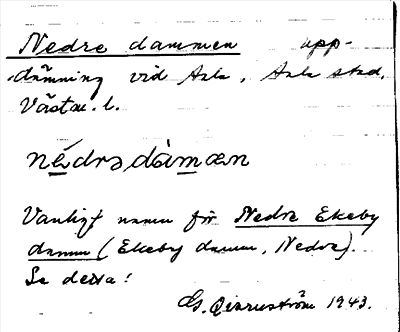 Nedre dammen upp-
dämning vid Sala, Sala stad,
Västm. l.
nédrə dàmæn
Vanligt namn för Nedre Ekeby
damm (Ekeby damm, Nedre).
Se detta!
G. 1943.